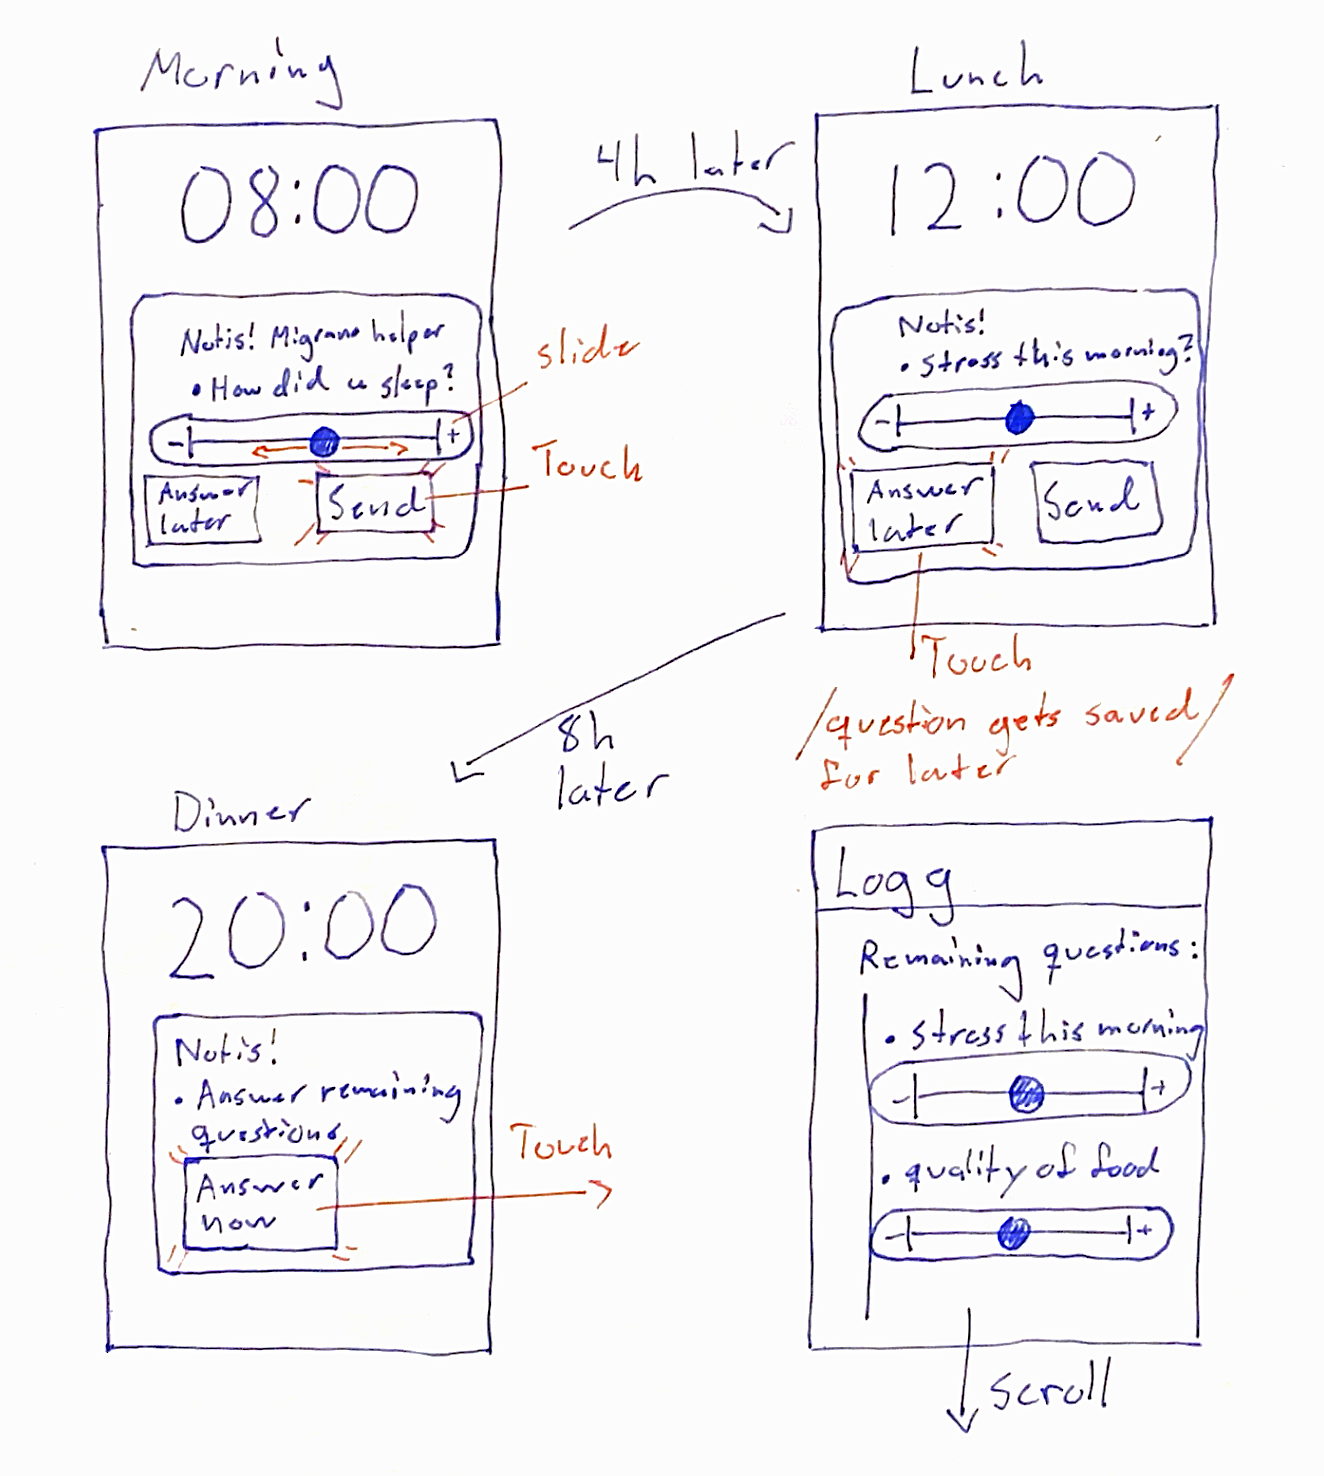 Morning
08:00
Notis! Migrane helper
• How did u sleep?
- +
Answer
later
Send
slide
Touch
4h later
Lunch
12:00
Notis!
• stress this morning?
- +
Answer
later
Send
Touch
/question gets saved/
for later
8h
later
Dinner
20:00
Notis!
• Answer remaining
questions
Answer
now
Touch
Logg
Remaining questions:
• stress this morning
- +
• quality of food
- +
scroll